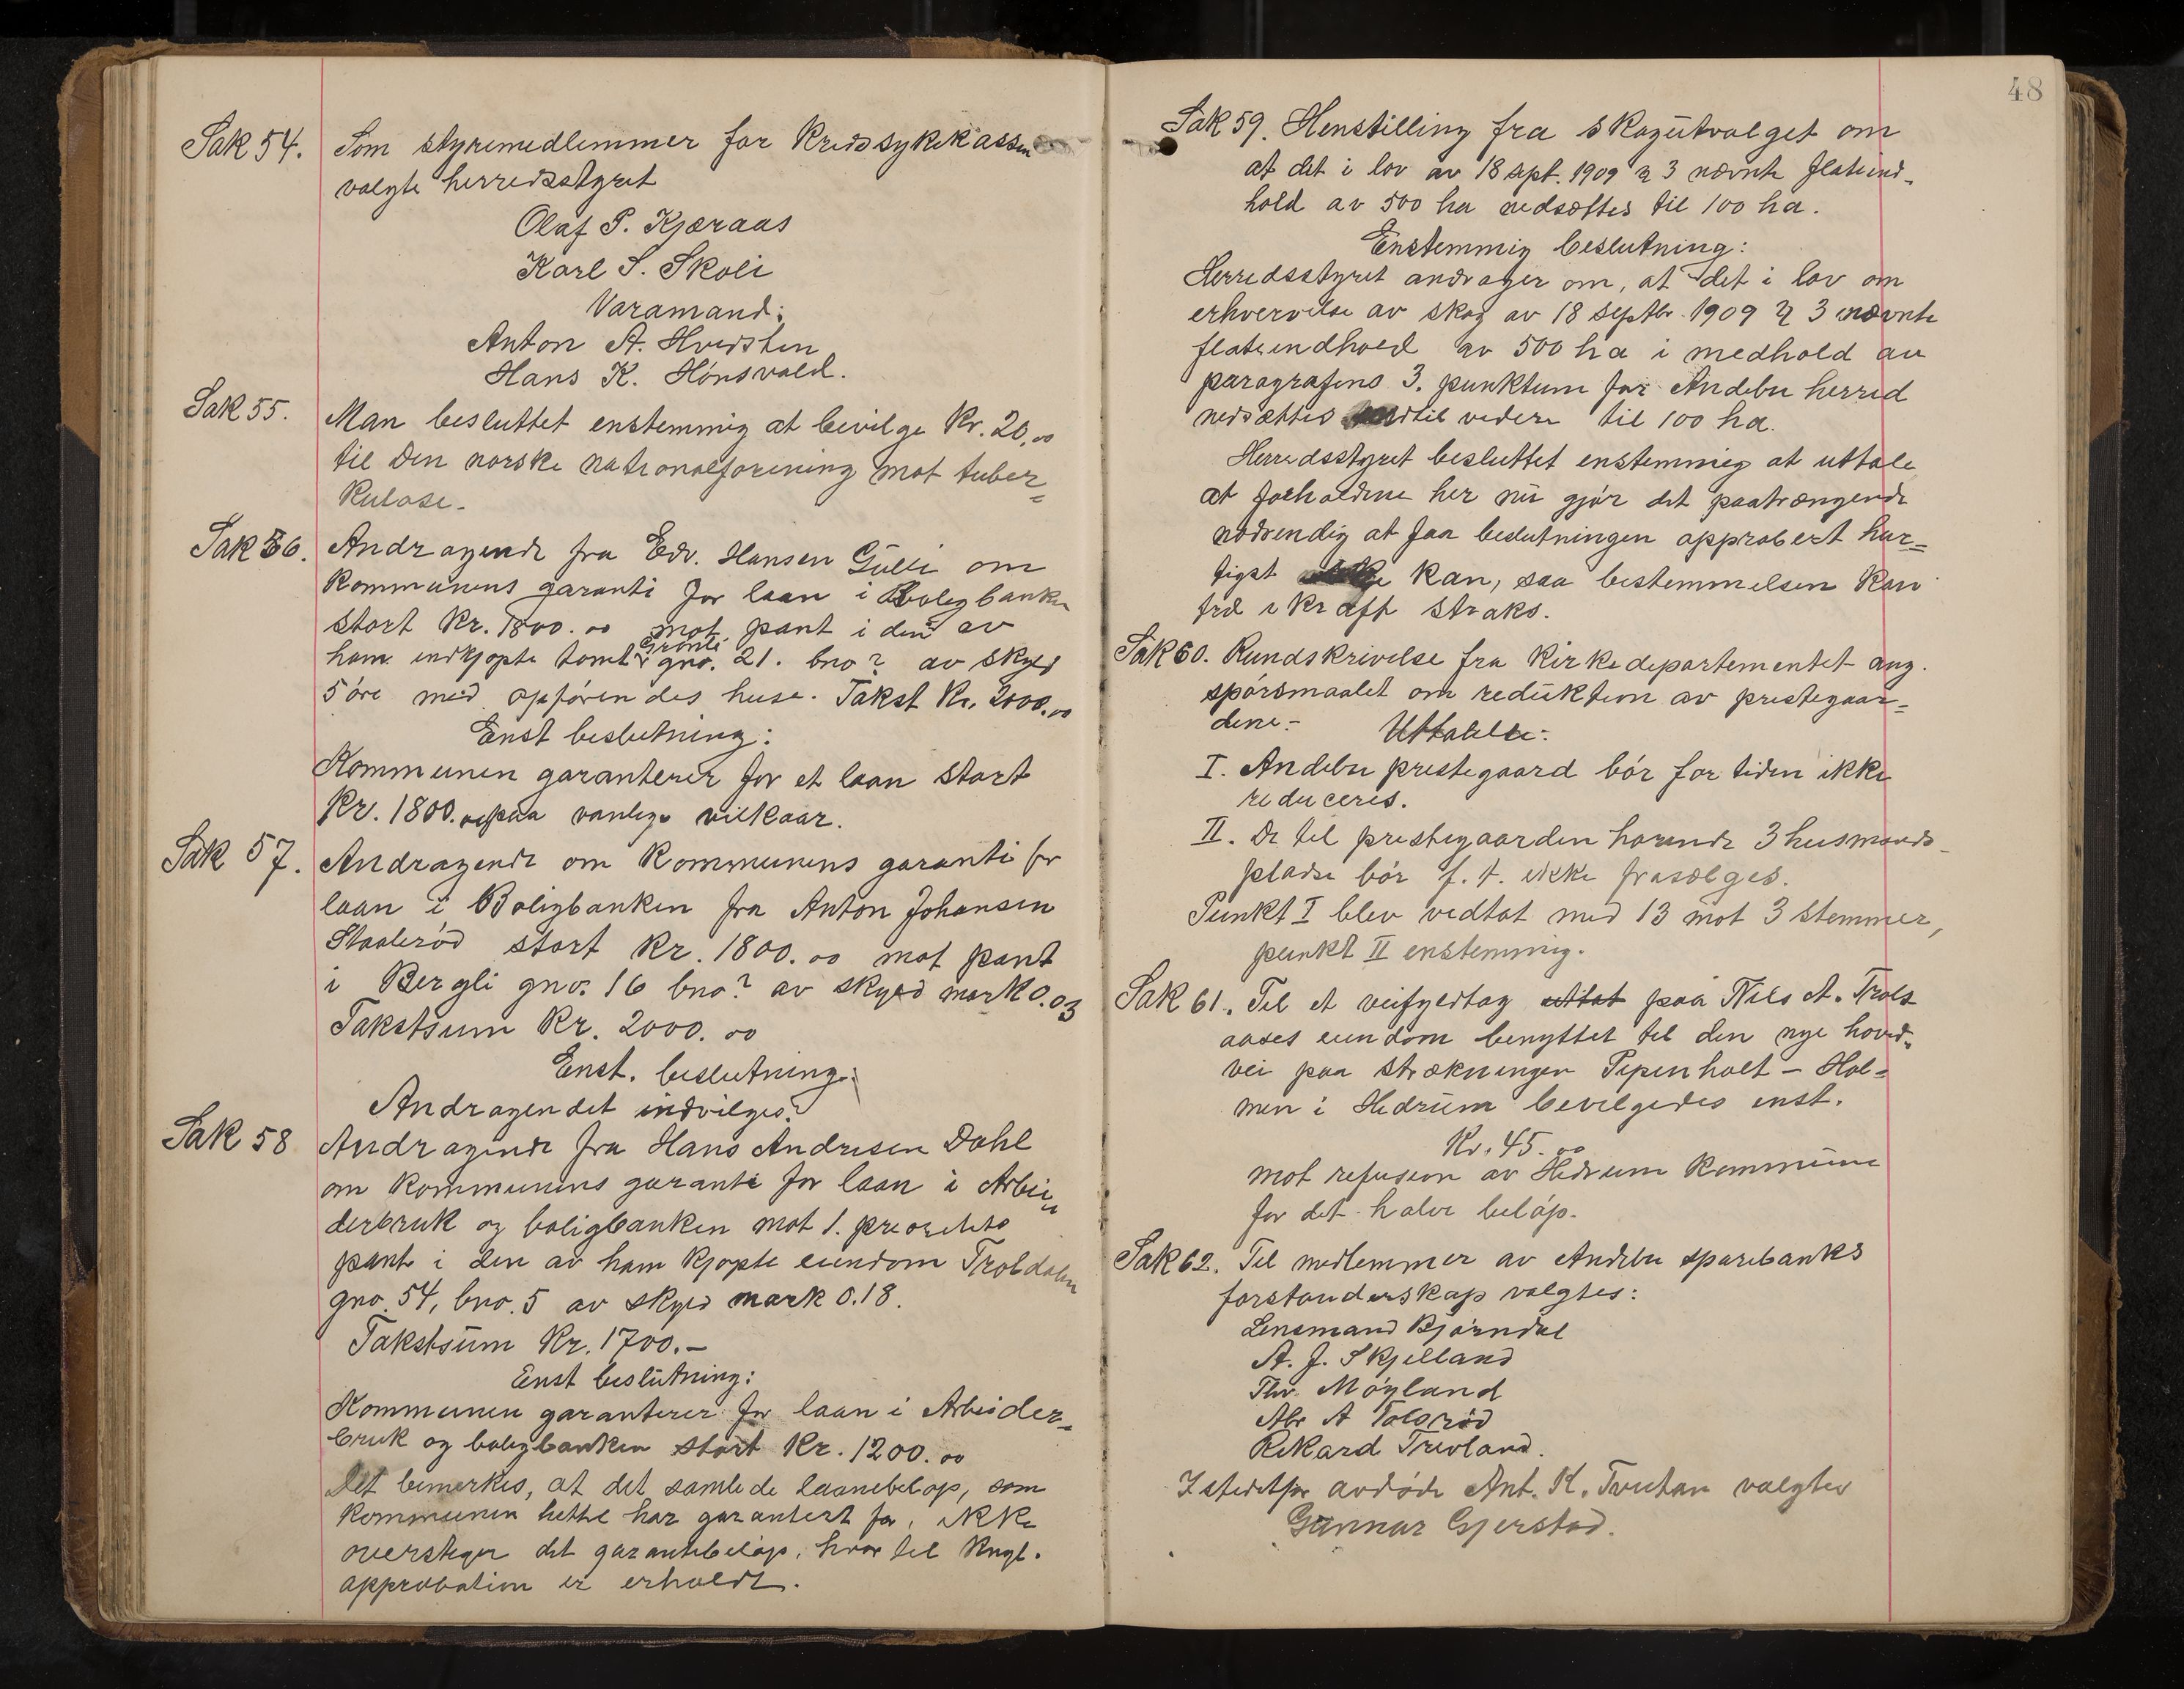 Sak 54. Som styremedlemmer for Kredssykekassen
valgte herredsstyret
Olaf P. Kjæraas
Karl S. Skoli
Varamænd:
Anton A. Hvidsten
Hans K. Hönsvald.
Sak 55. Man besluttet enstemmig at bevilge Kr. 20,00
til Den norske nationalforening mot tuber=
kulose.
Sak 56. Andragende fra Edv. Hansen Gulli om
Kommunens garanti for laan i Boligbanken
stort Kr. 1800.00 mot pant i den av
Grönli
ham indkjöpte tomt gno. 21. bno? av skyld
5 öre med opförendes huse. Takst Kr. 2000.00
Enst beslutning:
Kommunen garanterer for et laan stort
Kr. 1800.00 paa vanlige vilkaar.
Sak 57. Andragende om Kommunens garanti for
laan i Boligbanken fra Anton Johansen
Staalerød stort Kr. 1800.00 mot pant
i Bergli gno. 16 bno? av skyld mark 0.03
Takstsum Kr. 2000.00
Enst. beslutning:
Andragendet indvilges.
Sak 58 Andragende fra Hans Andresen Dahl
om Kommunens garanti for laan i Arbei=
derbruk og boligbanken mot 1. prioritets
pant i den av ham kjøpte eiendom Troldalen
gno. 54, bno. 5 av skyld mark 0.18.
Takstsum Kr. 1700.-
Enst beslutning:
Kommunen garanterer for laan i Arbeider=
bruk og boligbanken stort Kr. 1200.00
Det bemerkes, at det samlede laanebeløp, som
Kommunen hittil har garantert for, ikke
overstiger det garantibeløp, hvor til Kngl.
approbation er erholdt.
48
Sak 59. Henstilling fra skogutvalget om
at det i lov av 18 sept. 1909 § 3 nævnte flateind-
hold av 500 ha nedsættes til 100 ha.
Enstemmig beslutning:
Herredsstyret andrager om, at det i lov om
erhvervelse av skog av 18 septbr. 1909 § 3 nævnte
flateindhold av 500 ha i medhold av
paragrafens 3. punktum for Andebu herred
nedsættes indtil videre til 100 ha.
Herredsstyret besluttet enstemmig at uttale
at forholdene her nu gjör det paatrængende
nödvendig at faa beslutningen approbert hur=
tigst kan, saa bestemmelsen Kan
træ i kraft straks.
Sak 60. Rundskrivelse fra Kirkedepartementet ang.
spörsmaalet om reduktion av prestegaar=
dene.- Uttalelse:
I. Andebu prestegaard bör for tiden ikke
reduceres.
II. De til prestegaarden hørende 3 husmands-
pladse bör f. t. ikke frasælges.
Punkt I blev vedtat med 13 mot 3 stemmer,
punkt II enstemmig.
Sak 61. Til et veifyldtag uttat paa Nils A. Trols
aases eiendom benyttet til den nye hoved-
vei paa strækningen Pipenholt - Hol=
men i Hedrum bevilgedes enst.
Kr. 45.00
mot refusion av Hedrum Kommune
for det halve belöp.
Sak 62. Til medlemmer av Andebu sparebanks
forstanderskap valgtes:
Lensmand Bjørndal
A. J. Skjelland
Thv. Möyland
Abr A Tolsröd
Rikard Trevland.
I stedetfor avdöde Ant. K. valgtes
Gunnar Gjerstad.